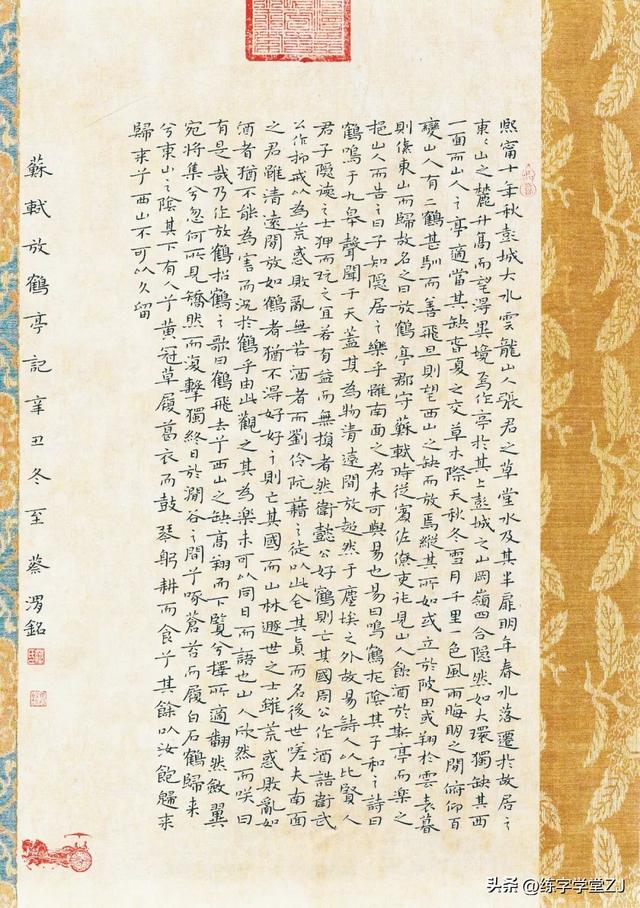 熙甯十年秋彭城大水雲龍山人張君之草堂水及其半扉明年春水落遷於故居之
東東山之麓升高而望得異境焉作亭於其上彭城之山岡嶺四合隱然如大環獨缺其西
一面而山人之亭適當其缺春夏之交草木際天秋冬雪月千里一色風雨晦明之間俯仰百
變山人有二鶴甚馴而善飛旦則望西山之缺而放焉縱其所如或立於陂田或翔於雲表暮
則傃東山而歸故名之曰放鶴亭郡守蘇軾時從賓佐僚吏往見山人飲酒於斯亭而樂之
挹山人而告之曰子知隱居之樂乎雖南面之君未可與易也易曰鳴鶴在陰其子和之詩曰
鶴鳴于九皋聲聞于天蓋其為物清遠閒放超然于塵埃之外故易詩人以比賢人
君子隱德之士狎而玩之宜若有益而無損者然衛懿公好鶴則亡其國周公作酒誥衛武
公作抑戒以為荒惑敗亂無若酒者而劉伶阮藉之徒以此全其真而名後世嗟夫南面
之君雖清遠閒放如鶴者猶不得好好之則亡其國而山林遯世之士雖荒惑敗亂如
酒者猶不能為害而況於鶴乎由此觀之其為樂未可以同日而語也山人欣然而笑曰
有是哉乃作放鶴招鶴之歌曰鶴飛去兮西山之缺高翔而下覽兮擇所適翻然斂翼
宛將集兮忽何所見矯然而復擊獨終日於澗谷之間兮啄蒼苔而履白石鶴歸來
兮東山之陰其下有人兮黃冠草履葛衣而鼓琴躬耕而食兮其餘以汝飽歸來
歸來兮西山不可以久留
蘇軾放鶴亭記辛丑冬至蔡渭銘
头条 @练字学堂ZJ